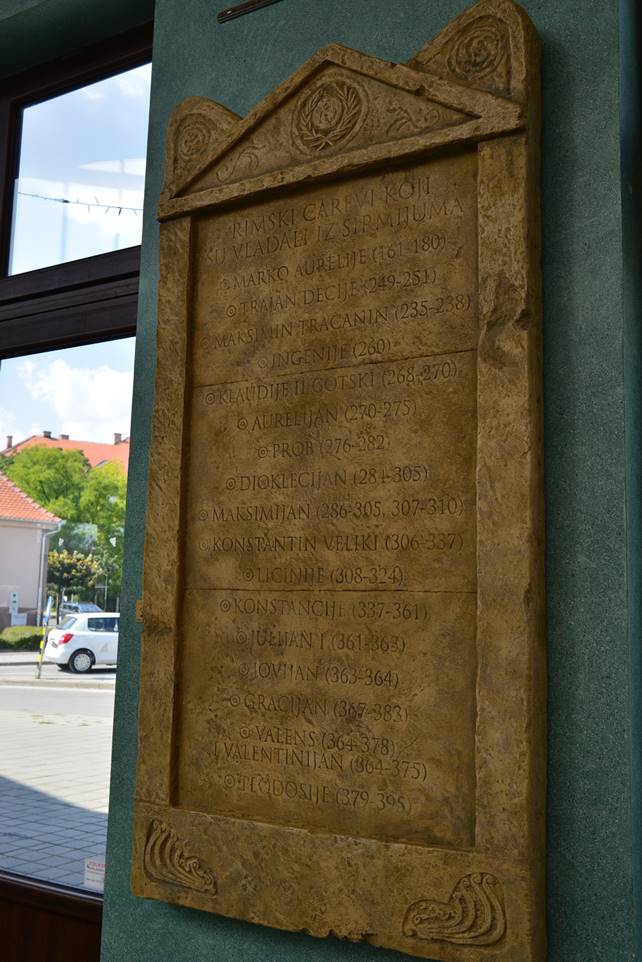 RIMSKI CAREVI KOJI
SU VLADALI IZ SIRMIJUMA
MARKO AURELIJE (161-180)
TRAJAN DECIJE (249-251)
MAKSIMIN TRAČANIN (235-238)
INGENIJE (260)
KLAUDIJE II GOTSKI (268-270)
AURELIJAN (270-275)
PROB (276-282)
DIOKLECIJAN (284-305)
MAKSIMIJAN (286-305, 307-310)
KONSTANTIN VELIKI (306-337)
LICINIJE (308-324)
KONSTANCIJE (337-361)
JULIJAN I (361-363)
JOVIJAN (363-364)
GRACIJAN (367-383)
VALENS (364-378)
I VALENTINIJAN (364-375)
TEODOSIJE (379-395)